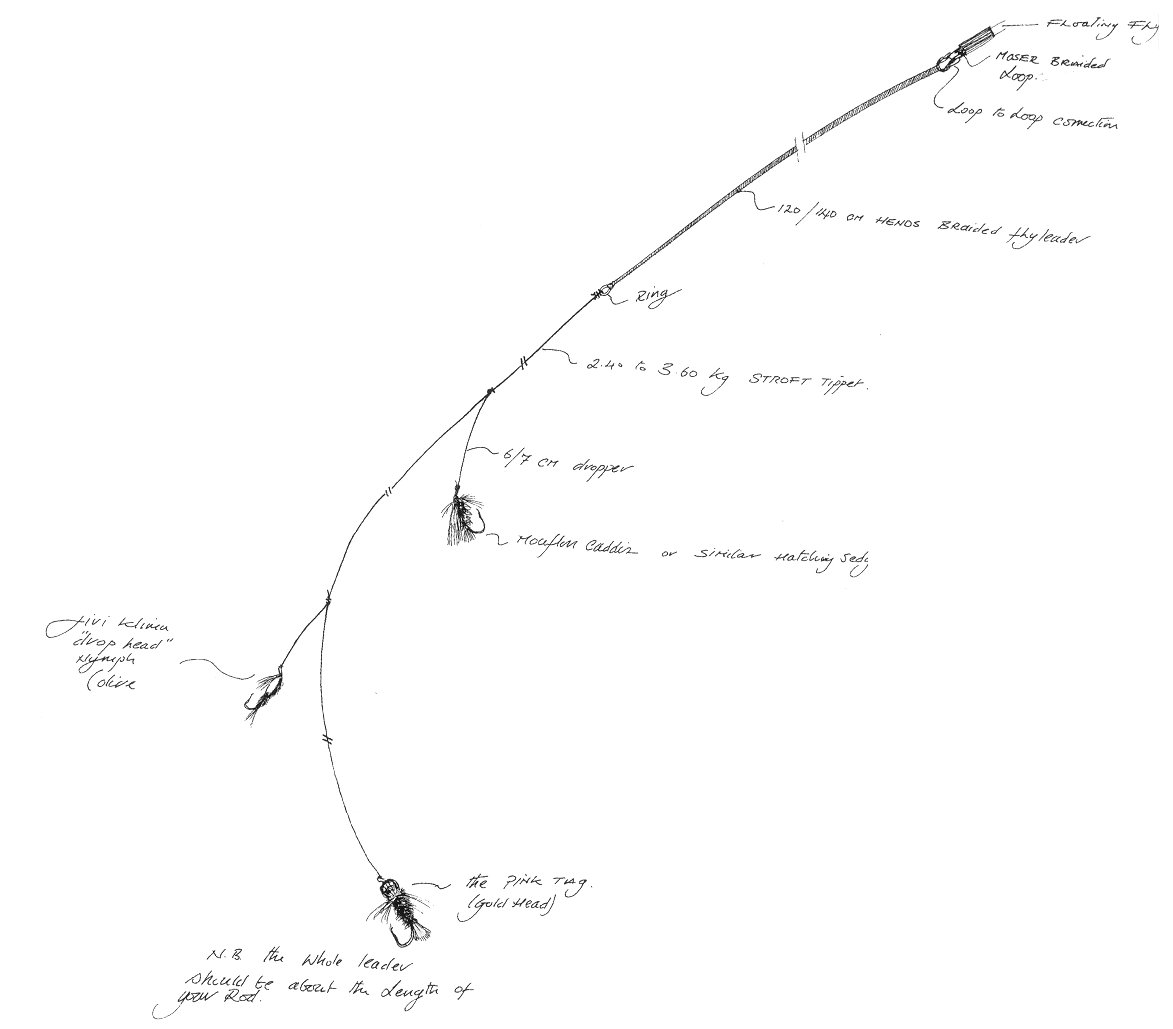 Floating Fly
MOSER Braided
Loop.
Loop to Loop connection
120/140 cm HENDS Braided flyleader
Ring
2.40 to 3.60 Kg STROFT Tippet.
6/7 cm dropper
Mouflon Caddis or similar Hatching Sedg
"drop head"
Nymph
(olive
the PINK TAG.
(Gold Head)
N.B. the whole leader
should be about the Length of
your Rod.